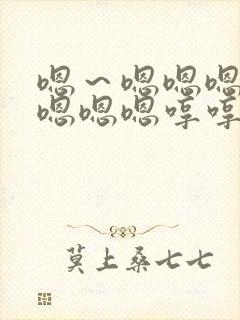 嗯～嗯嗯嗯
嗯嗯嗯哼哼
莫上桑七七